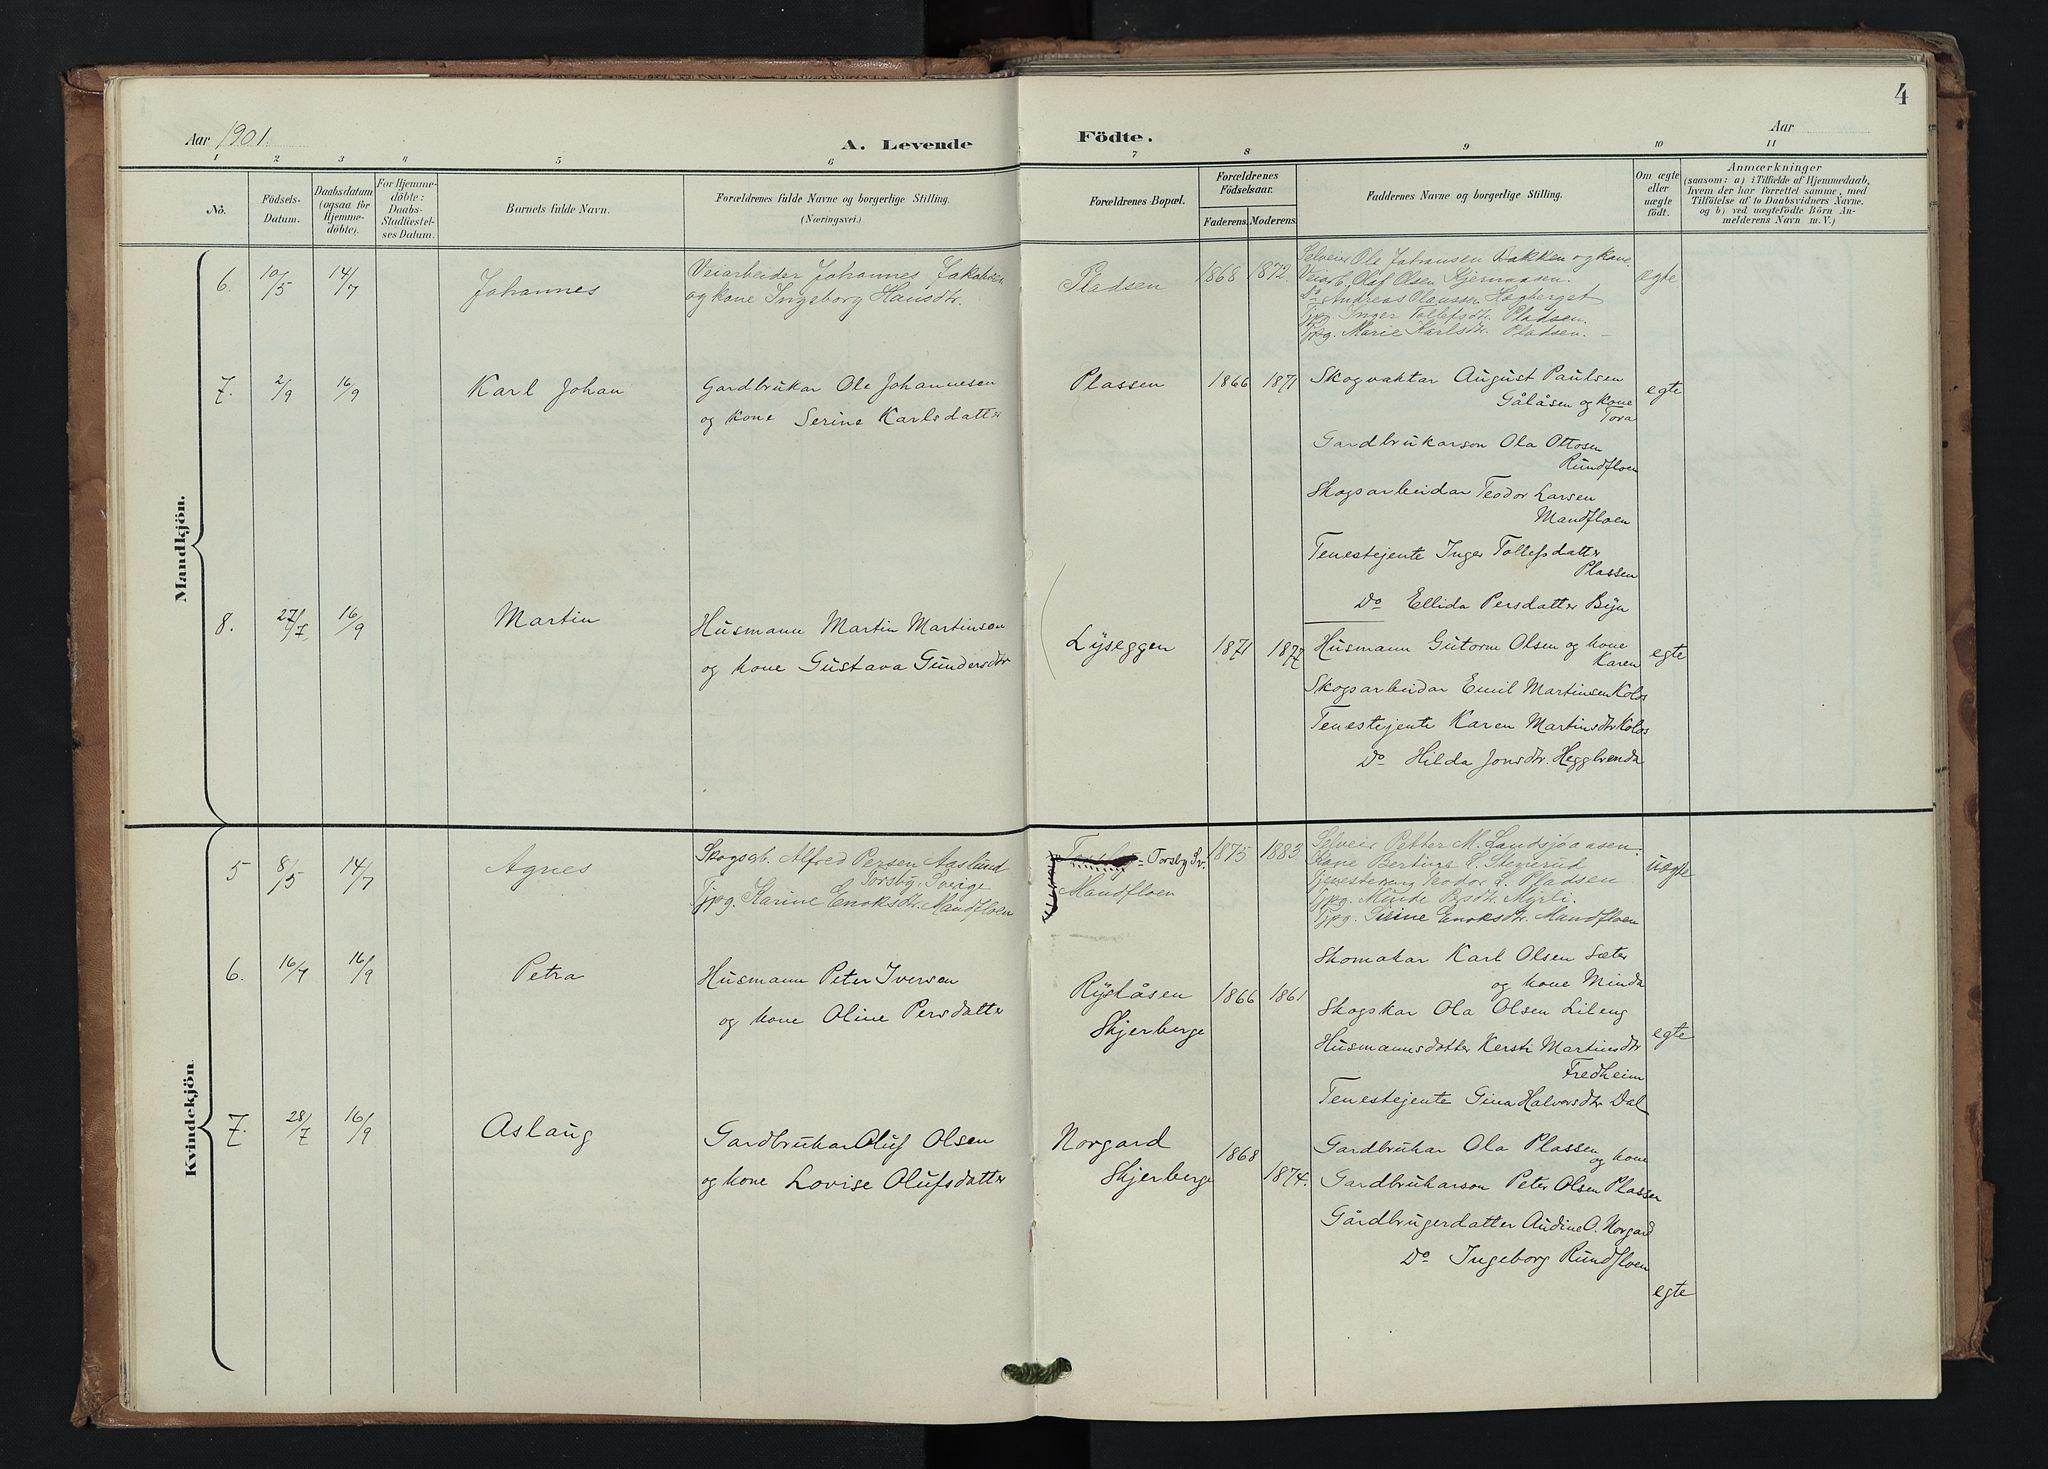 4
Aar 1901.
A. Levende Födte.
Aar
1 2 3 4 5 6 7 8 9 10 11
No.
Födsels-Datum.
Daabsdatum (ogsaa for Hjemme-döbte).
For Hjemme-döbte: Daabs-Stadfæstel-ses Datum.
Barnets fulde Navn.
Forældrenes fulde Navne og borgerlige Stilling.
(Næringsvei.)
Forældrenes Bopæl.
Forældrenes Födselsaar.
Faderens. Moderens.
Faddernes Navne og borgerlige Stilling.
Om ægte eller uægte födt.
Anmærkninger
(saasom: a) i Tilfælde af Hjemmedaab,
hvem der har forrettet samme, med
Tilföielse af to Daabsvidners Navne,
og b) ved uægtefödte Börn An-
melderens Navn m. V.)
Mandkjön.
6. 10/5 14/7 Johannes
Veiarbeider Johannes Jakobsen
og kone Ingeborg Hansdtr.
Pladsen 1868 1872.
Selveier Ole Johansen Bakken og kone.
Veiarb. Olaf Olsen Skjernaasen.
Do Andreas Olaussen Hagberget
Tjpg. Inger Tollefsdtr. Pladsen.
Tjpg. Marie Karlsdtr. Pladsen.
egte
7. 2/9 16/9 Karl Johan
Gardbrukar Ole Johannesen
og kone Serine Karlsdatter
Plassen 1866 1871
Skogvaktar August Paulsen
Gålåsen og kone
Tora
Gardbrukarson Ola Ottosen
Rundfloen
Skogsarbeidar Teodor Larsen
Mandfloen
Tenestejente Inger Tollefsdatter
Plassen
Do Ellida Persdatter Byn
egte
8. 27/7 16/9 Martin
Husmann Martin Martinsen
og kone Gustava Gundersdtr
Lyseggen 1871 1877
Husmann Gutorm Olsen og kone
Karen
Skogsarbeidar Emil Martinsen Kolos
Tenestejente Karen Martinsdtr Kolos
Do Hilda Jonsdtr. Heggbrenda
egte
Kvindekjön.
5 8/5 14/7 Agnes
Skogsgb. Alfred Persen Aaslund
Torsby, Sverige
Tjpg. Karine Enoksdtr. Mandfloen
Torsby Sv.
Mandfloen
1875 1883
Selveier Petter M. Landsjøaasen.
Kone Bertine L. Stenerud
Tjenestedreng Teodor L. Pladsen
Tjpg. Minde Persdtr. Myrli.
Tjpg. Sirine Enoksdtr. Mandfloen
uegte
6. 16/7 16/9 Petra
Husmann Peter Iversen
og kone Oline Persdatter
Ryskåsen
Skjerberge
1866 1861
Skomakar Karl Olsen Sæter
og kone Minda
Skogskar Ola Olsen Lileng
Husmannsdatter Kersti Martinsdtr
Fredheim
Tenestejente Gina Halvorsdtr Dal
egte
7. 28/7 16/9 Aslaug
Gardbrukar Oluf Olsen
og kone Lovise Olufsdatter
Norgard
Skjerberge
1868 1874.
Gardbrukar Ola Plassen og kone
Gardbrukarson Peter Olsen Plassen
Gårdbrugerdatter Audine O. Norgard
Do Ingeborg Rundfloen
egte